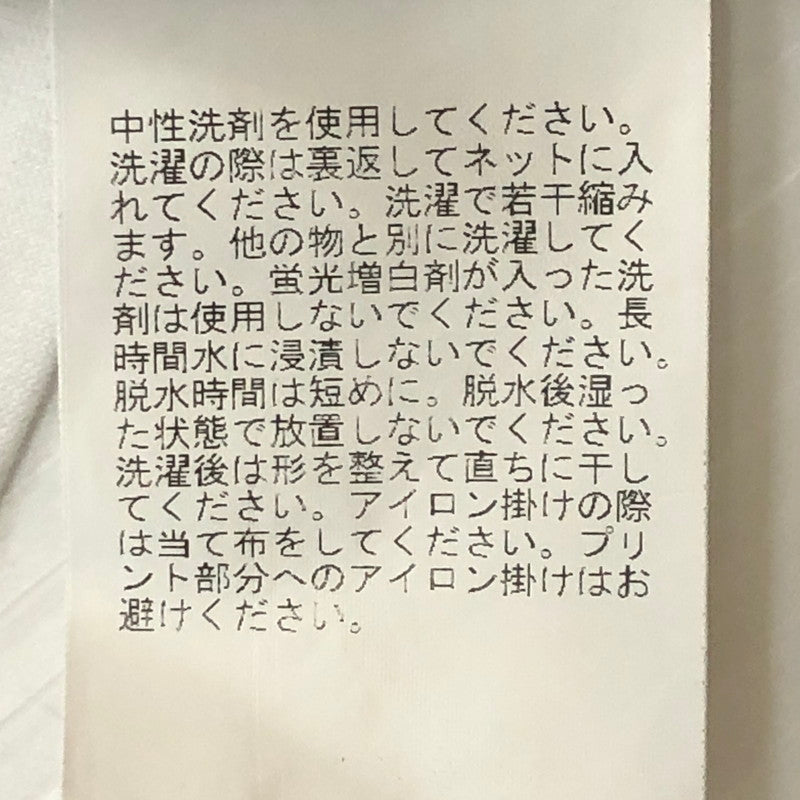 中性洗剤を使用してください。
洗濯の際は裏返してネットに入
れてください。洗濯で若干縮み
ます。他の物と別に洗濯してく
ださい。蛍光増白剤が入った洗
剤は使用しないでください。長
時間水に浸漬しないでください。
脱水時間は短めに。脱水後湿っ
た状態で放置しないでください。
洗濯後は形を整えて直ちに干し
てください。アイロン掛けの際
は当て布をしてください。プリ
ント部分へのアイロン掛けはお
避けください。